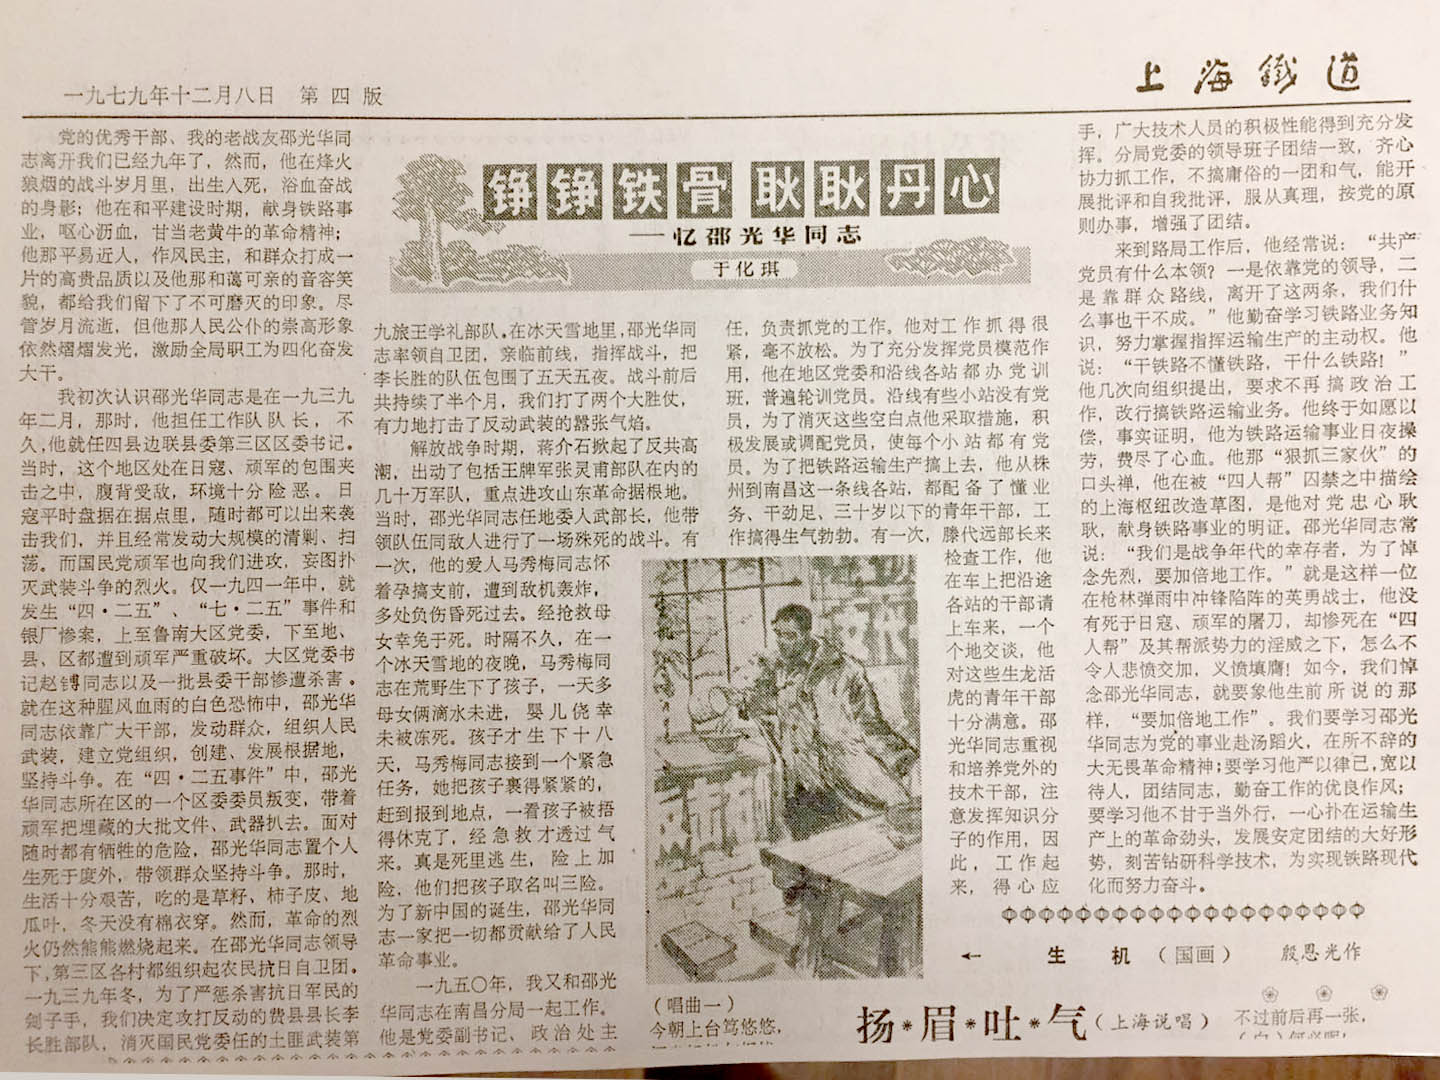 一九七九年十二月八日 第四版
上海鐵道
铮铮铁骨 耿耿丹心
——忆邵光华同志
于化琪
党的优秀干部、我的老战友邵光华同
志离开我们已经九年了，然而，他在烽火
狼烟的战斗岁月里，出生入死，浴血奋战
的身影；他在和平建设时期，献身铁路事
业，呕心沥血，甘当老黄牛的革命精神；
他那平易近人，作风民主，和群众打成一
片的高贵品质以及他那和蔼可亲的音容笑
貌，都给我们留下了不可磨灭的印象。尽
管岁月流逝，但他那人民公仆的崇高形象
依然熠熠发光，激励全局职工为四化奋发
大干。
我初次认识邵光华同志是在一九三九
年二月，那时，他担任工作队队长，不
久，他就任四县边联县委第三区区委书记。
当时，这个地区处在日寇、顽军的包围夹
击之中，腹背受敌，环境十分险恶。日
寇平时盘据在据点里，随时都可以出来袭
击我们，并且经常发动大规模的清剿、扫
荡。而国民党顽军也向我们进攻，妄图扑
灭武装斗争的烈火。仅一九四一年中，就
发生“四·二五”、“七·二五”事件和
银厂惨案，上至鲁南大区党委，下至地、
县、区都遭到顽军严重破坏。大区党委书
记赵镈同志以及一批县委干部惨遭杀害。
就在这种腥风血雨的白色恐怖中，邵光华
同志依靠广大干部，发动群众，组织人民
武装，建立党组织，创建、发展根据地，
坚持斗争。在“四·二五事件”中，邵光
华同志所在区的一个区委委员叛变，带着
顽军把埋藏的大批文件、武器扒去。面对
随时都有牺牲的危险，邵光华同志置个人
生死于度外，带领群众坚持斗争。那时，
生活十分艰苦，吃的是草籽、柿子皮、地
瓜叶，冬天没有棉衣穿。然而，革命的烈
火仍然熊熊燃烧起来。在邵光华同志领导
下，第三区各村都组织起农民抗日自卫团。
一九三九年冬，为了严惩杀害抗日军民的
刽子手，我们决定攻打反动的费县县长李
长胜部队，消灭国民党委任的土匪武装第
九旅王学礼部队。在冰天雪地里，邵光华同
志率领自卫团，亲临前线，指挥战斗，把
李长胜的队伍包围了五天五夜。战斗前后
共持续了半个月，我们打了两个大胜仗，
有力地打击了反动武装的嚣张气焰。
解放战争时期，蒋介石掀起了反共高
潮，出动了包括王牌军张灵甫部队在内的
几十万军队，重点进攻山东革命根据地。
当时，邵光华同志任地委人武部长，他带
领队伍同敌人进行了一场殊死的战斗。有
一次，他的爱人马秀梅同志怀
着孕搞支前，遭到敌机轰炸，
多处负伤昏死过去。经抢救母
女幸免于死。时隔不久，在一
个冰天雪地的夜晚，马秀梅同
志在荒野生下了孩子，一天多
母女俩滴水未进，婴儿侥幸
未被冻死。孩子才生下十八
天，马秀梅同志接到一个紧急
任务，她把孩子裹得紧紧的，
赶到报到地点，一看孩子被捂
得休克了，经急救才透过气
来。真是死里逃生，险上加
险，他们把孩子取名叫三险。
为了新中国的诞生，邵光华同
志一家把一切都贡献给了人民
革命事业。
一九五〇年，我又和邵光
华同志在南昌分局一起工作。
他是党委副书记、政治处主
任，负责抓党的工作。他对工作抓得很
紧，毫不放松。为了充分发挥党员模范作
用，他在地区党委和沿线各站都办党训
班，普遍轮训党员。沿线有些小站没有党
员，为了消灭这些空白点他采取措施，积
极发展或调配党员，使每个小站都有党
员。为了把铁路运输生产搞上去，他从株
州到南昌这一条线各站，都配备了懂业
务、干劲足、三十岁以下的青年干部，工
作搞得生气勃勃。有一次，滕代远部长来
检查工作，他
在车上把沿途
各站的干部请
上车来，一个
个地交谈，他
对这些生龙活
虎的青年干部
十分满意。邵
光华同志重视
和培养党外的
技术干部，注
意发挥知识分
子的作用，因
此，工作起
来，得心应
手，广大技术人员的积极性能得到充分发
挥。分局党委的领导班子团结一致，齐心
协力抓工作，不搞庸俗的一团和气，能开
展批评和自我批评，服从真理，按党的原
则办事，增强了团结。
来到路局工作后，他经常说：“共产
党员有什么本领？一是依靠党的领导，二
是靠群众路线，离开了这两条，我们什
么事也干不成。”他勤奋学习铁路业务知
识，努力掌握指挥运输生产的主动权。他
说：“干铁路不懂铁路，干什么铁路！”
他几次向组织提出，要求不再搞政治工
作，改行搞铁路运输业务。他终于如愿以
偿，事实证明，他为铁路运输事业日夜操
劳，费尽了心血。他那“狠抓三家伙”的
口头禅，他在被“四人帮”囚禁之中描绘
的上海枢纽改造草图，是他对党忠心耿
耿，献身铁路事业的明证。邵光华同志常
说：“我们是战争年代的幸存者，为了悼
念先烈，要加倍地工作。”就是这样一位
在枪林弹雨中冲锋陷阵的英勇战士，他没
有死于日寇、顽军的屠刀，却惨死在“四
人帮”及其帮派势力的淫威之下，怎么不
令人悲愤交加，义愤填膺！如今，我们悼
念邵光华同志，就要象他生前所说的那
样，“要加倍地工作”。我们要学习邵光
华同志为党的事业赴汤蹈火，在所不辞的
大无畏革命精神；要学习他严以律已，宽以
待人，团结同志，勤奋工作的优良作风；
要学习他不甘于当外行，一心扑在运输生
产上的革命劲头，发展安定团结的大好形
势，刻苦钻研科学技术，为实现铁路现代
化而努力奋斗。
← 生机（国画） 殷恩光作
（唱曲一）
今朝上台笃悠悠，
扬*眉*吐*气（上海说唱）
不过前后再一张，